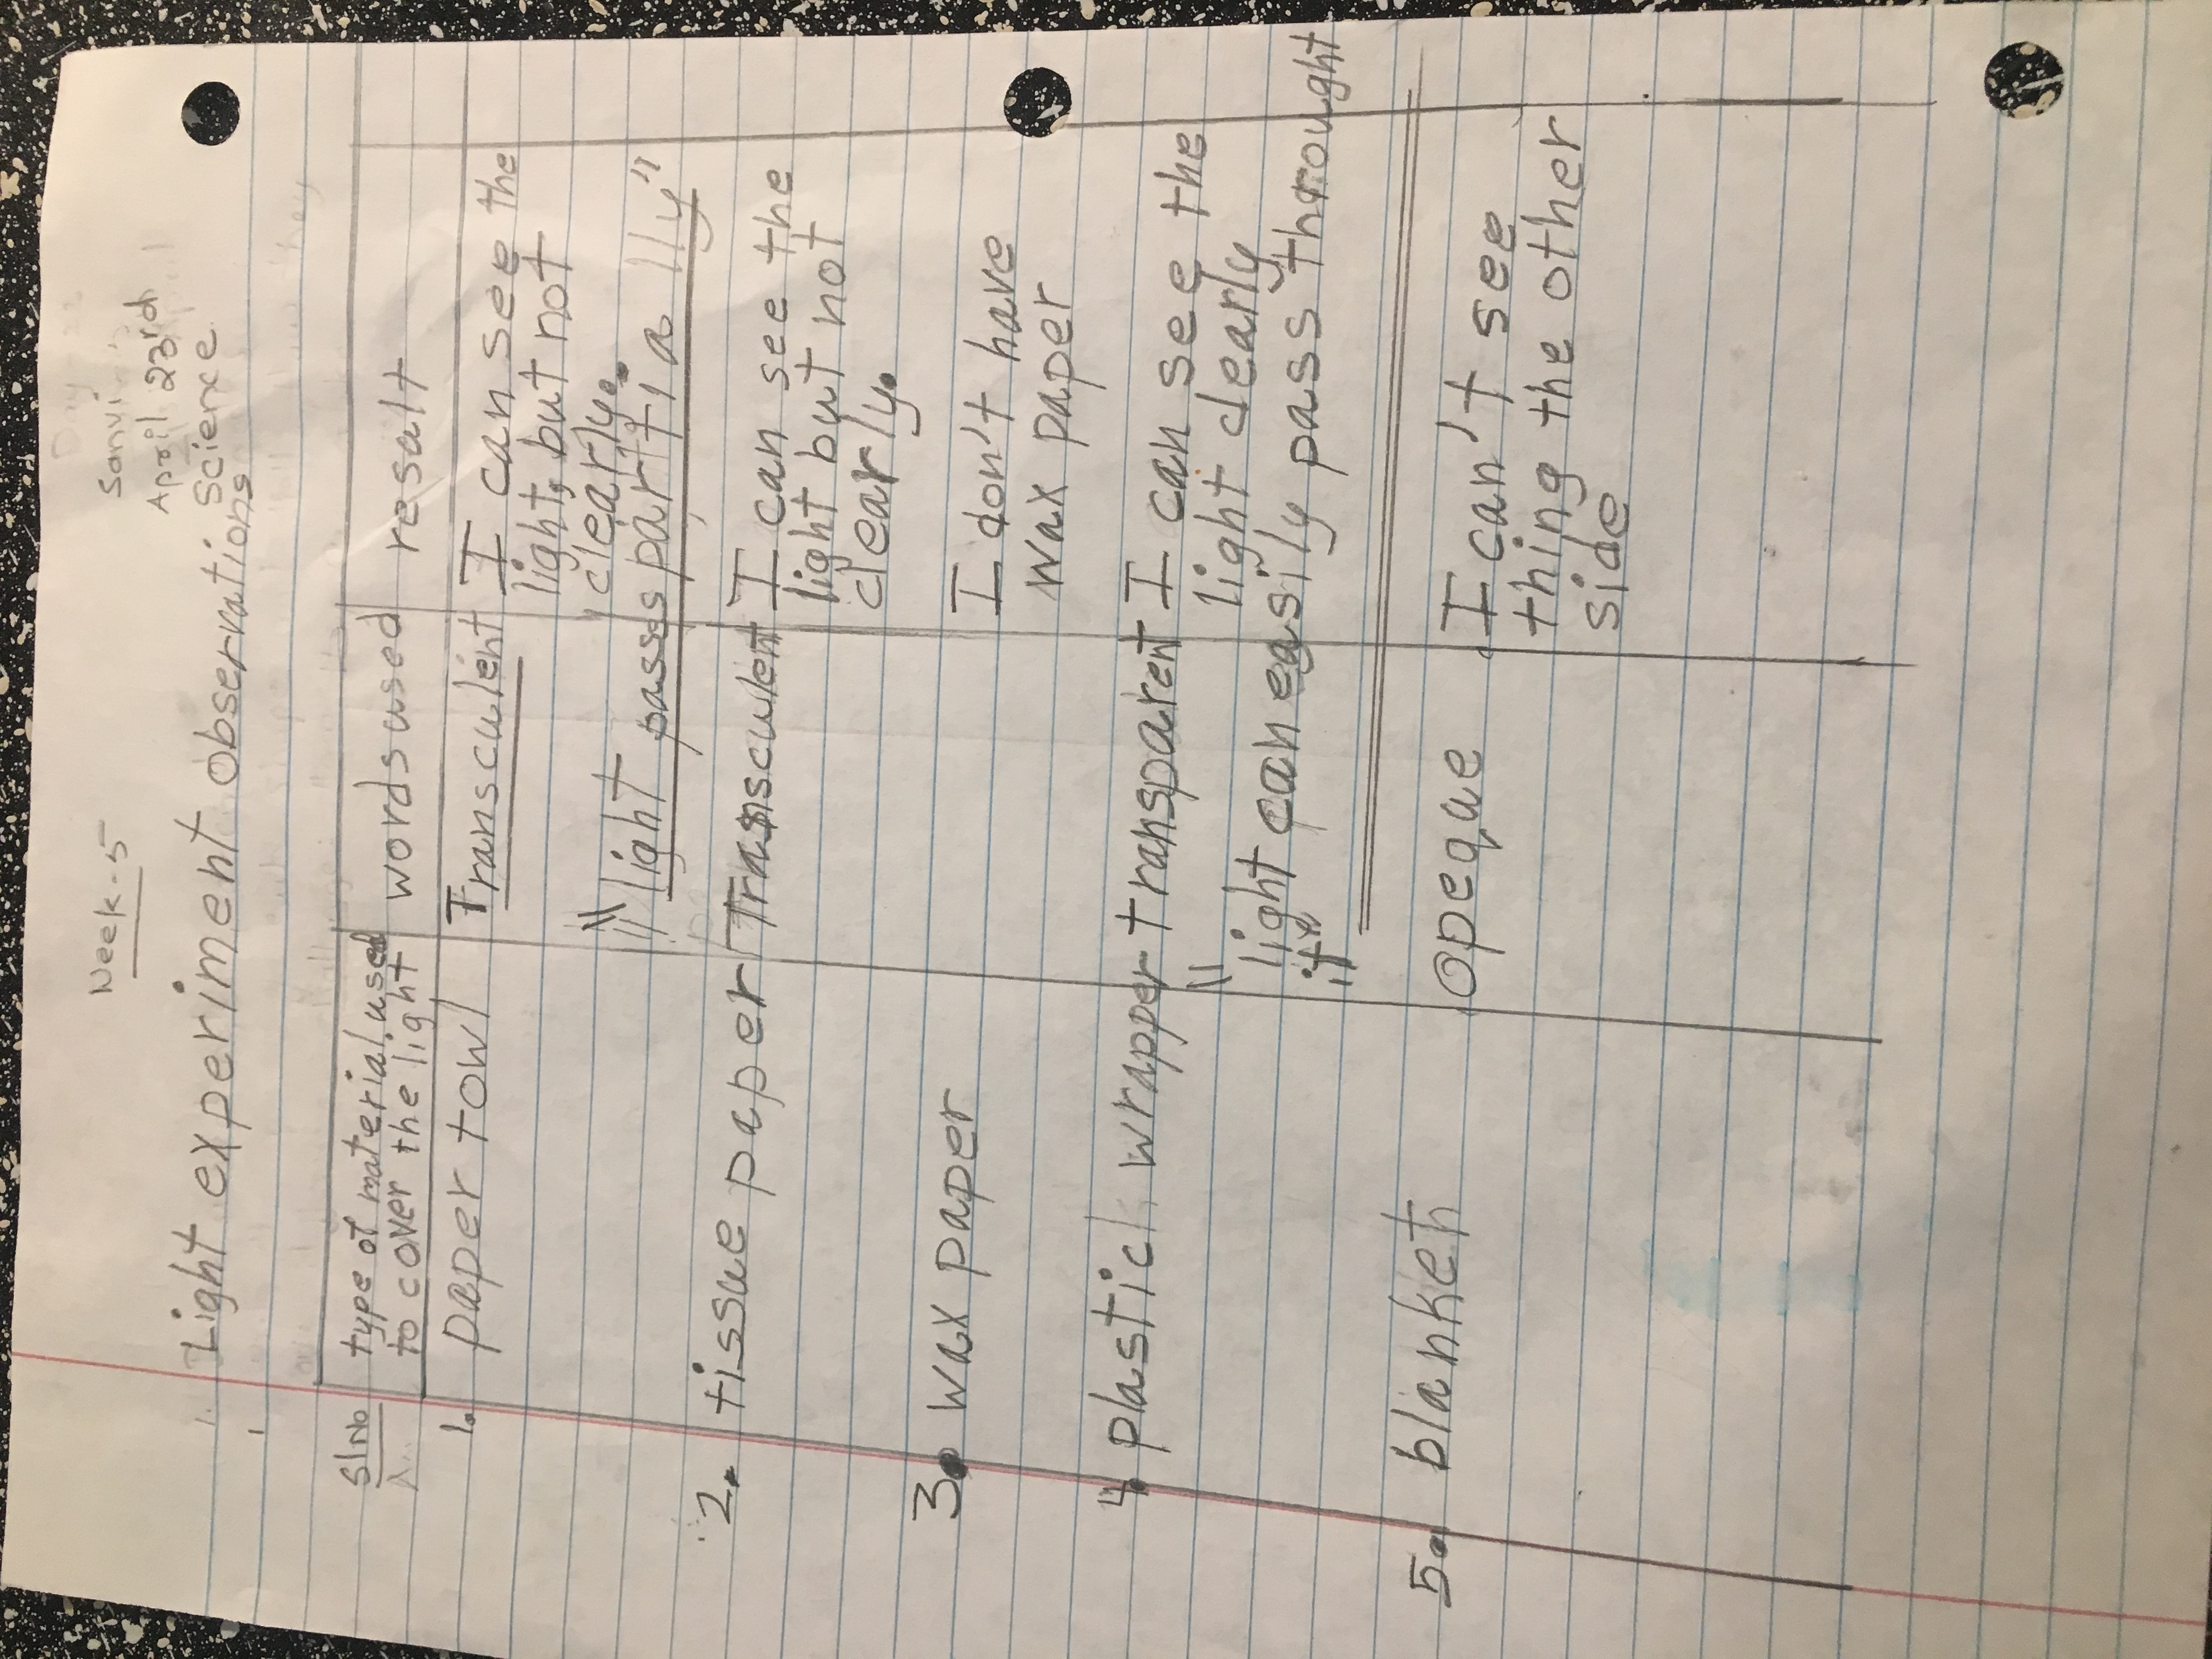 Week-5
Sanvi
April 23rd
Science
1. Light experiment observations
Sl No | type of material used to cover the light | words used | resalt
1. paper towl | Transculent | I can see the
light, but not
clearly.
"light passes partially"
2. tissue paper | Transculent | I can see the
light but not
clearly.
3. wax paper | I don't have
wax paper
4. plastic wrapper | transparent | I can see the
light clearly
"light can easily pass throught
it"
5. blanket | opeque | I can't see
thing the other
side